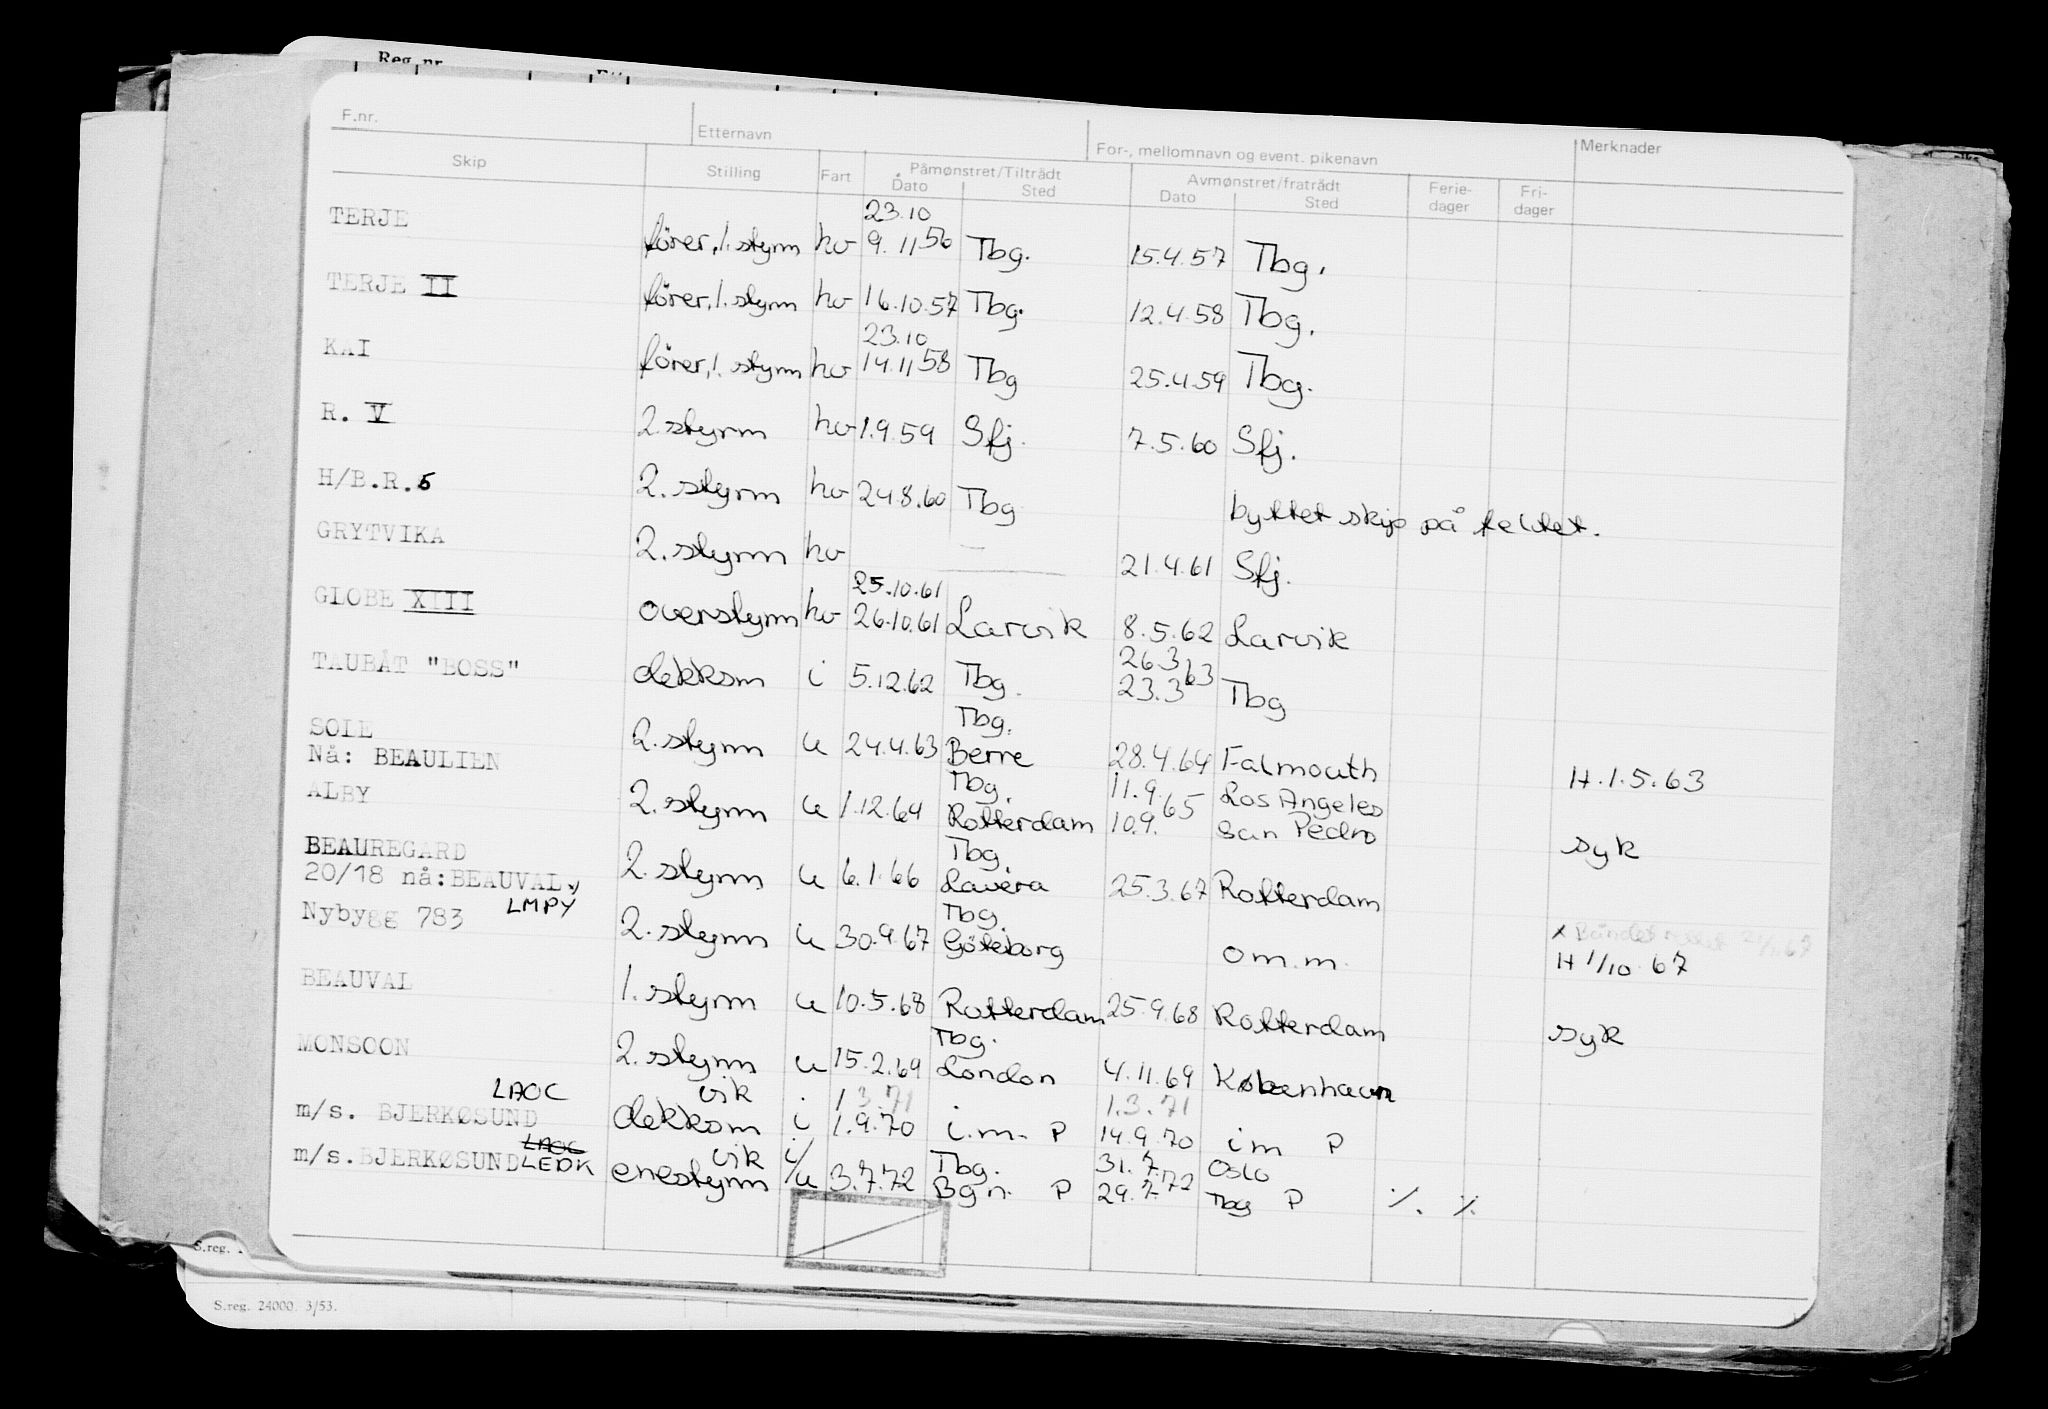 Reg. nr.
F.nr. Etternavn For-, mellomnavn og event. pikenavn Merknader
Skip Stilling Fart Påmønstret/Tiltrådt Dato Sted Avmønstret/fratrådt Dato Sted Ferie-dager Fri-dager
23.10
TERJE förer, 1. styrm hv 9.11 56 Tbg. 15.4.57 Tbg.
TERJE II förer, 1. styrm hv 16.10.57 Tbg. 12.4.58 Tbg.
23.10
KAI förer, 1. styrm hv 14.11 58 Tbg 25.4.59 Tbg.
R. V 2. styrm hv 1.9.59 Sfj. 7.5.60 Sfj.
H/B.R.5 2. styrm hv 24.8.60 Tbg byttet skip på feltet.
GRYTVIKA 2. styrm hv — 21.4.61 Sfj.
25.10.61
GLOBE XIII overstyrm hv 26.10.61 Larvik 8.5.62 Larvik
26.3
TAUBÅT "BOSS" dekksm i 5.12.62 Tbg. 23.3 63 Tbg
SOLE Tbg.
Nå: BEAULIEN 2. styrm u 24.4.63 Berre 28.4.64 Falmouth H.1.5.63
Tbg. 11.9. Los Angeles
ALBY 2. styrm u 1.12.64 Rotterdam 10.9. 65 San Pedro syk
BEAUREGARD Tbg.
20/18 nå: BEAUVAL, 2. styrm u 6.1.66 Lavera 25.3.67 Rotterdam
LMPY Tbg. x
Nybygg 783 2. styrm u 30.9.67 Göteborg om.m. H 1/10 67
BEAUVAL 1. styrm u 10.5.68 Rotterdam 25.9.68 Rotterdam syk
Tbg.
MONSOON 2. styrm u 15.2.69 London 4.11.69 København
LAOC vik 1.3.71 1.3.71
m/s. BJERKØSUND dekksm i 1.9.70 i.m. P 14.9.70 im P
LAOC vik i/ Tbg. 31.7. Oslo
m/s. BJERKØSUND LEDK enestyrm u 3.7.72 Bgn. P 29.7.72 Tbg P ·/. ·/.
S.reg.
S.reg. 24000. 3/53.